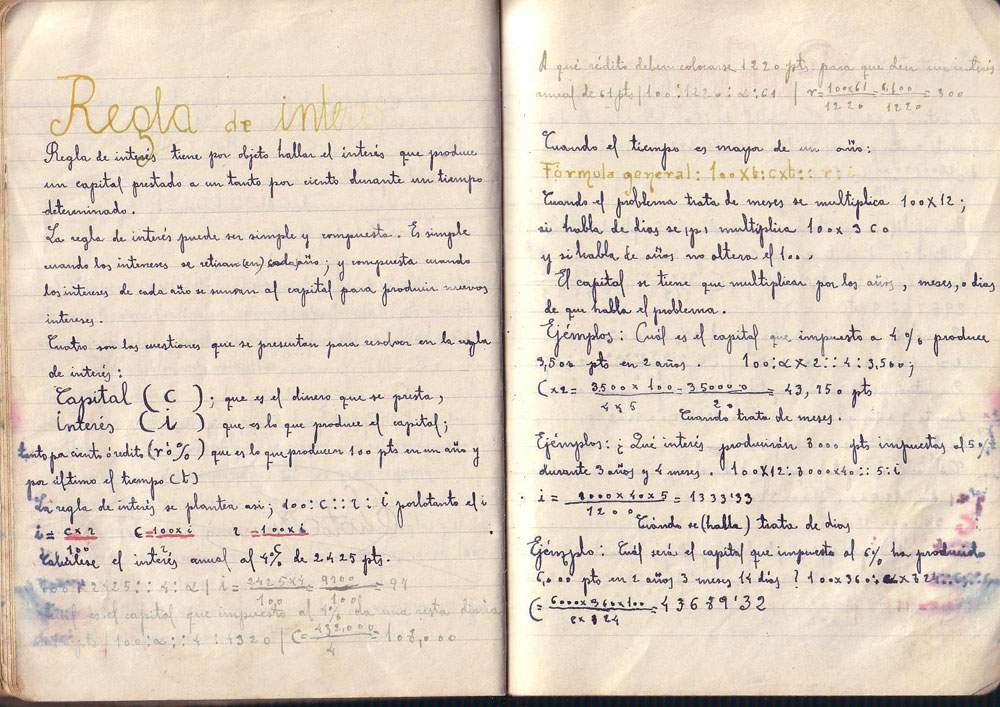 Regla de inter
Regla de interés tiene por objeto hallar el interés que produce
un capital prestado a un tanto por ciento durante un tiempo
determinado.
La regla de interés puede ser simple y compuesta. Es simple
cuando los intereses se retiran(en) cada año; y compuesta cuando
los intereses de cada año se suman al capital para producir nuevos
intereses.
Cuatro son las cuestiones que se presentan para resolver en la regla
de interés:
Capital (C); que es el dinero que se presta,
interés (i) que es lo que produce el capital;
tanto por ciento ó redito (r ó %) que es lo que producen 100 pts en un año y
por último el tiempo (t)
La regla de interés se plantea asi; 100:C::r:i por lo tanto el i
i = c x r / 100 C = 100 x i / r r = 100 x i
Calculese el interés anual al 4% de 2425 pts.
100:2425::4:α / i = 2425x4 / 100 = 9700 / 100 = 97
es el capital que impuesto al 4% da una renta diaria
pts / 100:α::4:4320 / C = 432,000 / 4 = 108,000
A qué rédito deben colocarse 1220 pts para que den un interés
anual de 61 pts / 100:1220::α:61 / r = 100x61 / 1220 = 6100 / 1220 = 300
Cuando el tiempo es mayor de un año:
Fórmula general: 100Xt:cxt::r:i
Cuando el problema trata de meses se multiplica 100X12;
si habla de dias se multiplica 100x360
y si habla de años no altera el 100.
El capital se tiene que multiplicar por los años, meses, o dias
de que habla el problema.
Ejémplos: Cuál es el capital que impuesto a 4% produce
3,500 pts en 2 años. 100:αX2::4:3,500;
Cx2 = 3500x100 = 350000 = 43,750 pts
Cuando trata de meses.
Ejémplos: ¿Qué interés producirán 3000 pts impuestas al 5%
durante 3 años y 4 meses. 100X12:3000x40::5:i
i = x40x5 / 1200 = 1333'33
Cuándo se (habla) trata de dias
Ejémplo: Cuál será el capital que impuesto al 6% ha producido
6,000 pts en 2 años 3 meses 14 dias? 100x360:αx824
C = 6000x360x100 / x824 = 43689'32